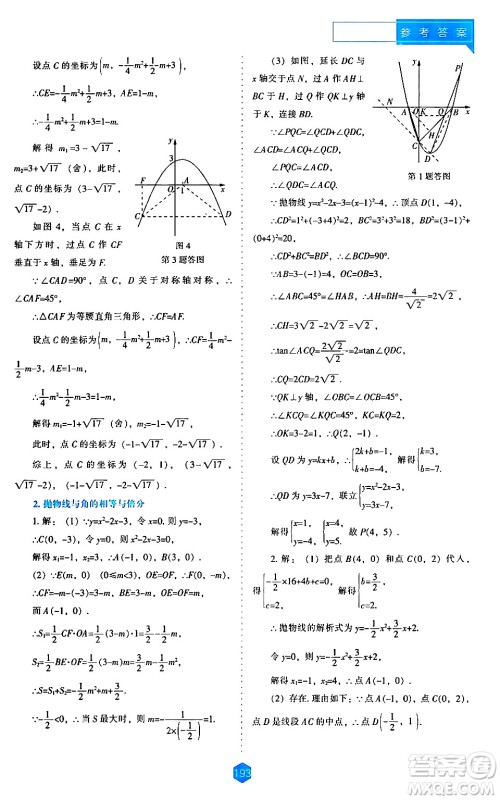 参考答案
设点 C 的坐标为(m, -1/4m²+1/2m+3).
∴CE=-1/4m²+1/2m+3, AE=1-m.
∴-1/4m²+1/2m+3=1-m.
解得 m₁=3-√17, m₂=3+√17 (舍), 此时, 点 C 的坐标为 (3-√17, √17-2).
如图 4, 当点 C 在 x 轴下方时, 过点 C 作 CF 垂直于 x 轴, 垂足为 F.
∵∠CAD=90°, 点 C、D 关于对称轴对称, ∴∠CAF=45°.
∴△CAF 为等腰直角三角形, ∴CF=AF.
设点 C 的坐标为(m, -1/4m²+1/2m+3), ∴CF=1/4m²-1/2m-3, AE=1-m.
∴1/4m²-1/2m-3=1-m.
解得 m₁=-1+√17 (舍), m₂=-1-√17.
此时, 点 C 的坐标为 (-1-√17, -2-√17).
综上, 点 C 的坐标为 (-2, 1), (3-√17, √17-2), (-1-√17, -2-√17).
图 4
第 3 题答图
2. 抛物线与角的相等与倍分
1. 解: (1) ∵y=x²-2x-3, 令 x=0. 则 y=-3,
∴C(0, -3). 令 y=0, 则 x²-2x-3=0.
解得 x₁=-1, x₂=3, ∴B(3, 0).
(2) ∵E(m, 0) (0≤m<3), OE=OF=m,
∴CF=-m-(-3)=3-m, BE=3-m, OE=OF=m.
而 A(-1, 0).
∴S₁=1/2CF·OA=1/2(3-m)·1=3/2-1/2m,
S₂=1/2BE·OF=1/2(3-m)·m=3/2m-1/2m².
∴S=S₁+S₂=-1/2m²+m+3/2.
∵-1/2<0, ∴当 S 最大时, 则 m=-1/(2×(-1/2))=1.
(3) 如图, 延长 DC 与 x 轴交于点 N, 过点 A 作 AH⊥DC 于 H, 作 QK⊥y 轴于 K, 连接 BC.
∵∠PQC=∠ACD+∠QDC, ∠PQC=2∠ACQ,
∴∠QDC=∠ACQ.
∵抛物线 y=x²-2x-3=(x-1)²-4, ∴顶点 D(1, -4).
∴CD²=1²+(-3+4)²=2, CB²=3²+3²=18, DB²=(3-1)²+(0+4)²=20,
∴CD²+CB²=DB², ∴∠BCD=90°.
∵AB=3-(-1)=4, AH∥BC,
∴∠ABC=45°=∠HAB, AH=BH=4/√2=2√2.
∴CH=3√2-2√2=√2.
∴tan∠ACQ=2√2/√2=2=tan∠QDC.
∴CQ=2CD=2√2, ∴QB=√2.
∵QK⊥y 轴, ∠OCB=45°,
∴∠KCQ=∠KQC=45°, ∴CK=QK=2.
∴OK=3-2=1, ∴Q(2, -1).
设 QD 为 y=kx+b, ∴{2k+b=-1, k+b=-4, 解得{k=3, b=-7,
∴QD 为 y=3x-7, 联立{y=3x-7, y=x²-2x-3,
解得{x=1, y=-4, {x=4, y=5, 故 P(4, 5).
第 1 题答图
2. 解: (1) 把点 B(4, 0) 和点 C(0, 2) 代入,
得{-1/2×16+4b+c=0, c=2, 解得{b=3/2, c=2.
∴抛物线的解析式为 y=-1/2x²+3/2x+2.
令 y=0, 则 -1/2x²+3/2x+2=0.
解得 x₁=-1, x₂=4, ∴A(-1, 0).
(2) 存在. 理由如下: ∵点 A(-1, 0), C(0, 2), 点 D 是线段 AC 的中点, ∴点 D(-1/2, 1).
193
答案圈